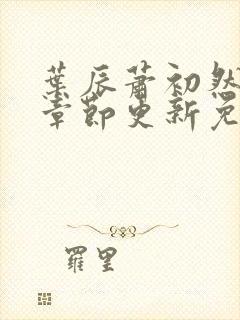 葉辰蕭初然
章節更新免
羅里